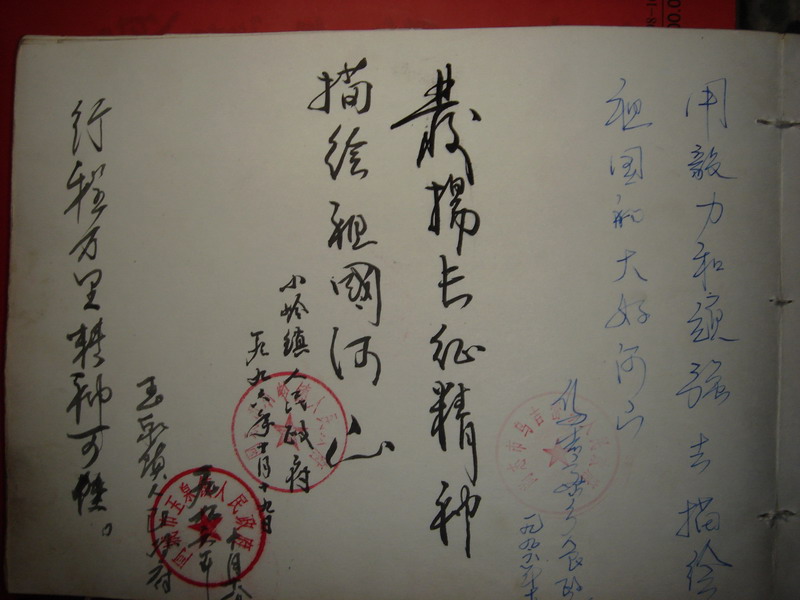 用毅力和顽强去描绘
祖国的大好河山
发扬长征精神
描绘祖國河山
小岭镇人民政府
一九九六年十月十九日
行程万里精神可佳。
玉泉镇人民政府